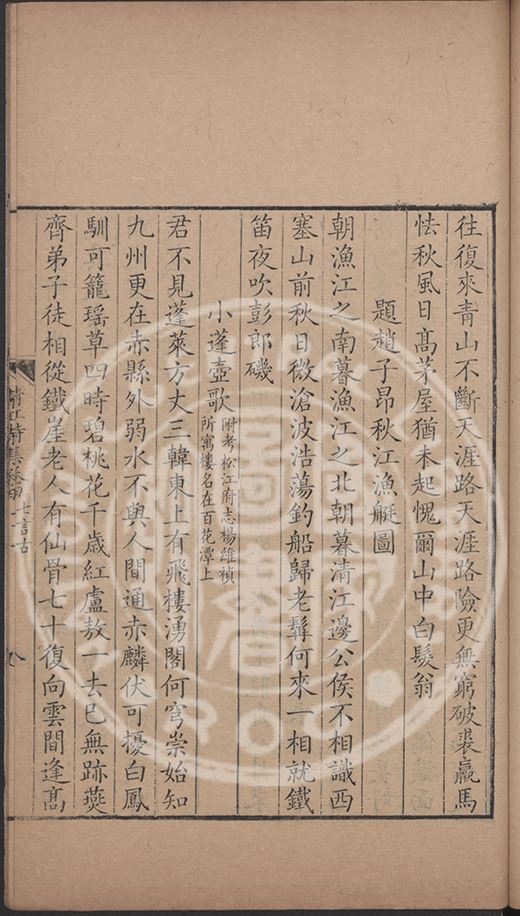 往復來青山不斷天涯路天涯路險更無窮破裘羸馬
怯秋風日髙茅屋猶未起愧爾山中白髮翁
題趙子昂秋江漁艇圖
朝漁江之南暮漁江之北朝暮清江邊公侯不相識西
塞山前秋日微滄波浩蕩釣船歸老髯何來一相就鐵
笛夜吹彭郎磯
小蓬壺歌
附考松江府志楊維禎
所寓樓名在百花潭上
君不見蓬萊方丈三韓東上有飛樓湧閣何穹崇始知
九州更在赤縣外弱水不與人間通赤麟伏可擾白鳳
馴可籠瑶草四時碧桃花千歳紅盧敖一去已無跡燕
齊弟子徒相從鐵崖老人有仙骨七十復向雲間逢髙
清江詩集卷四
七言古
八